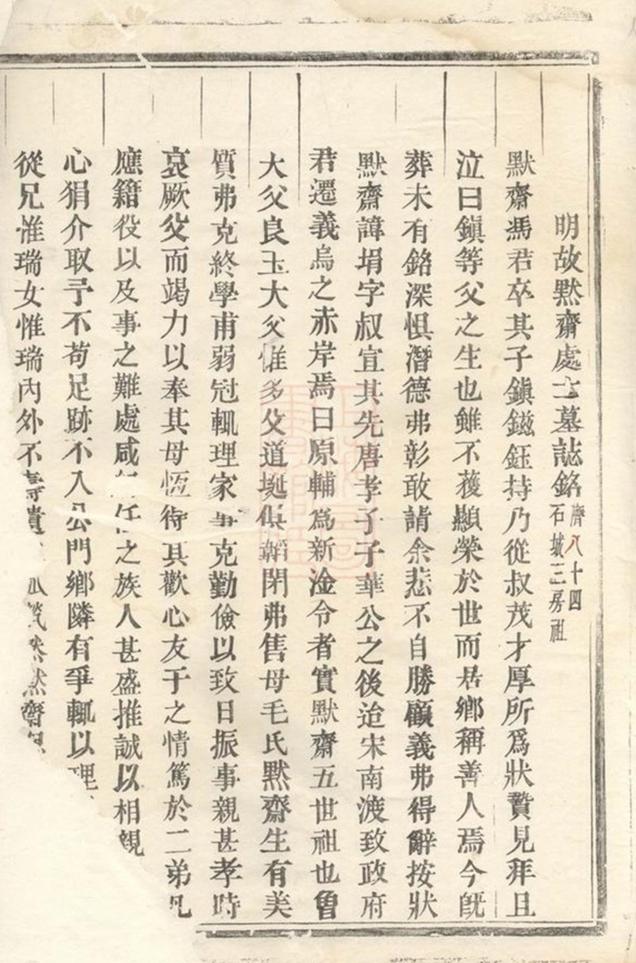 明故默齋處士墓誌銘 齊八十四 石城三房祖
默齋馮君卒其子鎭鎡鈺持乃從叔茂才厚所爲狀贄見拜且
泣曰鎭等父之生也雖不獲顯榮於世而居鄉稱善人焉今旣
葬未有銘深惧潛德弗彰敢請余悲不自勝顧義弗得辭按狀
默齋諱埍字叔宜其先唐孝子子華公之後迨宋南渡致政府
君遷義烏之赤岸焉曰原輔爲新淦令者實默齋五世祖也曾
大父良玉大父惟多父道挻俱韜閉弗售母毛氏默齋生有美
質弗克終學甫弱冠輒理家事克勤儉以致日振事親甚孝時
哀厥父而竭力以奉其母恆得其歡心友于之情篤於二弟凡
應籍役以及事之難處咸任之族人甚盛推誠以相親
心狷介取予不苟足跡不入公門鄉隣有爭輒以理
從兄惟瑞女惟瑞內外不壽遺孤煢煢然默齋